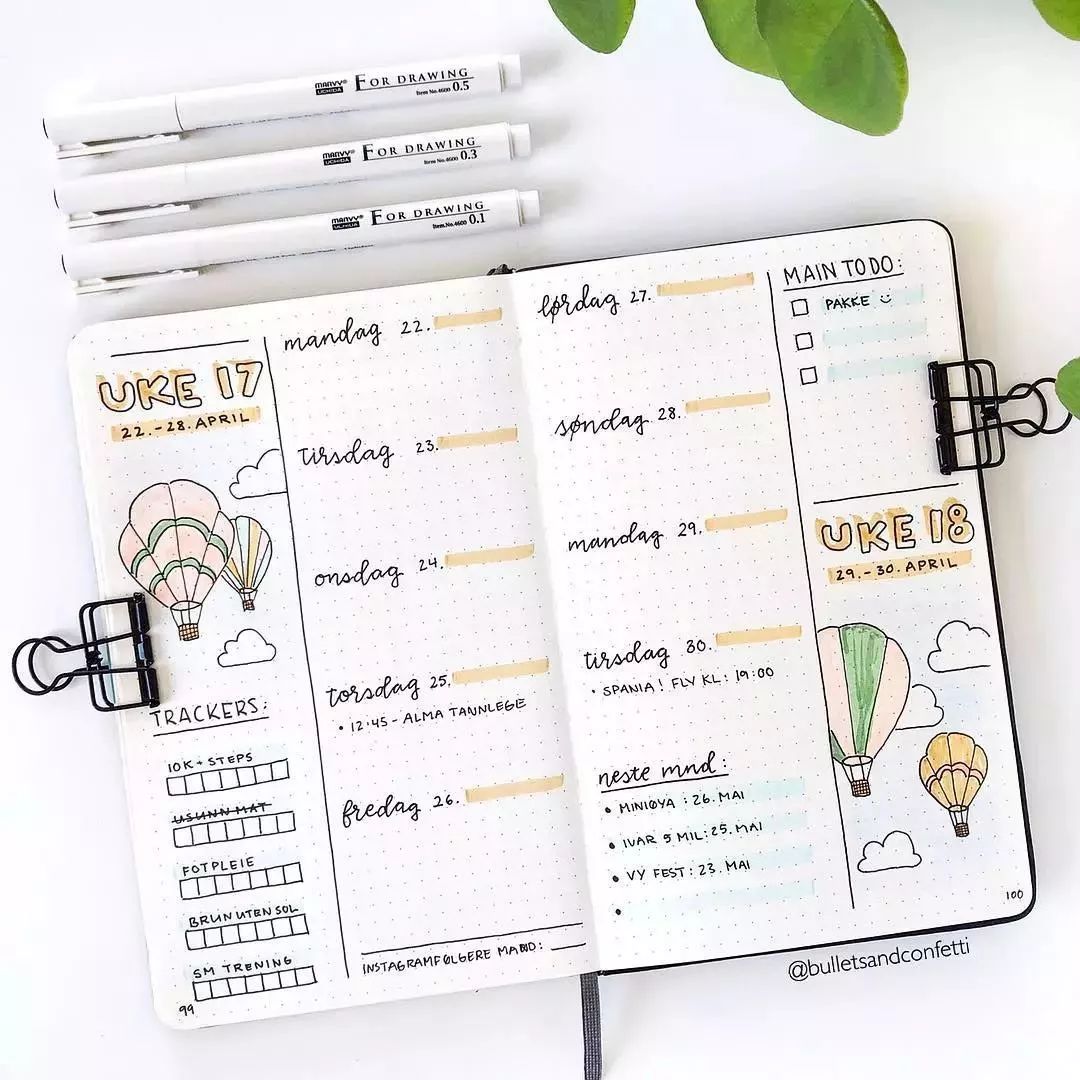 MARVY®
UCHIDA
FOR DRAWING
Item No.4600 0.5
MARVY®
UCHIDA
FOR DRAWING
Item No.4600 0.3
MARVY®
UCHIDA
FOR DRAWING
Item.No.4600 0.1
UKE 17
22.-28. APRIL
TRACKERS:
10K+ STEPS
USUNN MAT
FOTPLEIE
BRUN UTEN SOL
5M TRENING
99
mandag 22.
tirsdag 23.
onsdag 24.
torsdag 25.
• 12:45 - ALMA TANNLEGE
fredag 26.
INSTAGRAMFØLGERE MAND:
lørdag 27.
søndag 28.
mandag 29.
tirsdag 30.
• SPANIA! FLY KL: 19:00
neste mnd:
• MINIØYA : 26. MAI
• IVAR 5 MIL: 25. MAI
• VY FEST : 23. MAI
•
MAIN TO DO:
PAKKE
UKE 18
29.-30. APRIL
100
@bulletsandconfetti